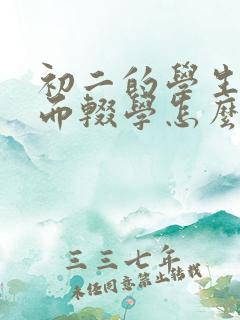 初二的學生
而輟學怎麼
三三七年
未任同意禁止转载